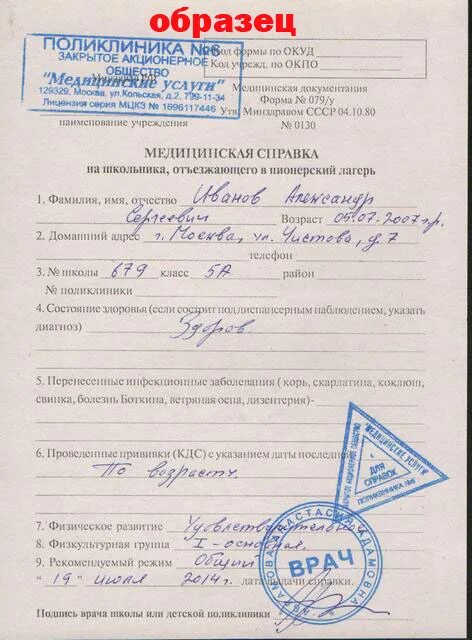 образец
ПОЛИКЛИНИКА №6
ЗАКРЫТОЕ АКЦИОНЕРНОЕ
ОБЩЕСТВО
"Медицинские услуги"
129329, Москва, ул.Кольская, д.2, 799-11-34
Лицензия серия МЦКЗ № 1696117446
наименование учреждения
Код формы по ОКУД
Код учрежд. по ОКПО
Медицинская документация
Форма № 079/у
Утв. Минздравом СССР 04.10.80
№ 0130
МЕДИЦИНСКАЯ СПРАВКА
на школьника, отъезжающего в пионерский лагерь
1. Фамилия, имя, отчество Иванов Александр
Сергеевич Возраст 05.07.2007 г.р.
2. Домашний адрес г. Москва, ул. Чистова, д. 7
телефон
3. № школы 679 класс 5А район
№ поликлиники
4. Состояние здоровья (если состоит под диспансерным наблюдением, указать
диагноз) Здоров
5. Перенесенные инфекционные заболевания ( корь, скарлатина, коклюш,
свинка, болезнь Боткина, ветряная оспа, дизентерия)-
6. Проведенные прививки (КДС) с указанием даты последней
По возрасту.
"МЕДИЦИНСКИЕ УСЛУГИ"
ЗАКРЫТОЕ АКЦИОНЕРНОЕ ОБЩЕСТВО
ПОЛИКЛИНИКА №6
ДЛЯ
СПРАВОК
7. Физическое развитие Удовлетворительное
8. Физкультурная группа I - основная.
9. Рекомендуемый режим Общий
" 19 " июля 2014 г. дата выдачи справки.
АНАСТАСИЯ АДАМОВНА
ВРАЧ
Подпись врача школы или детской поликлиники